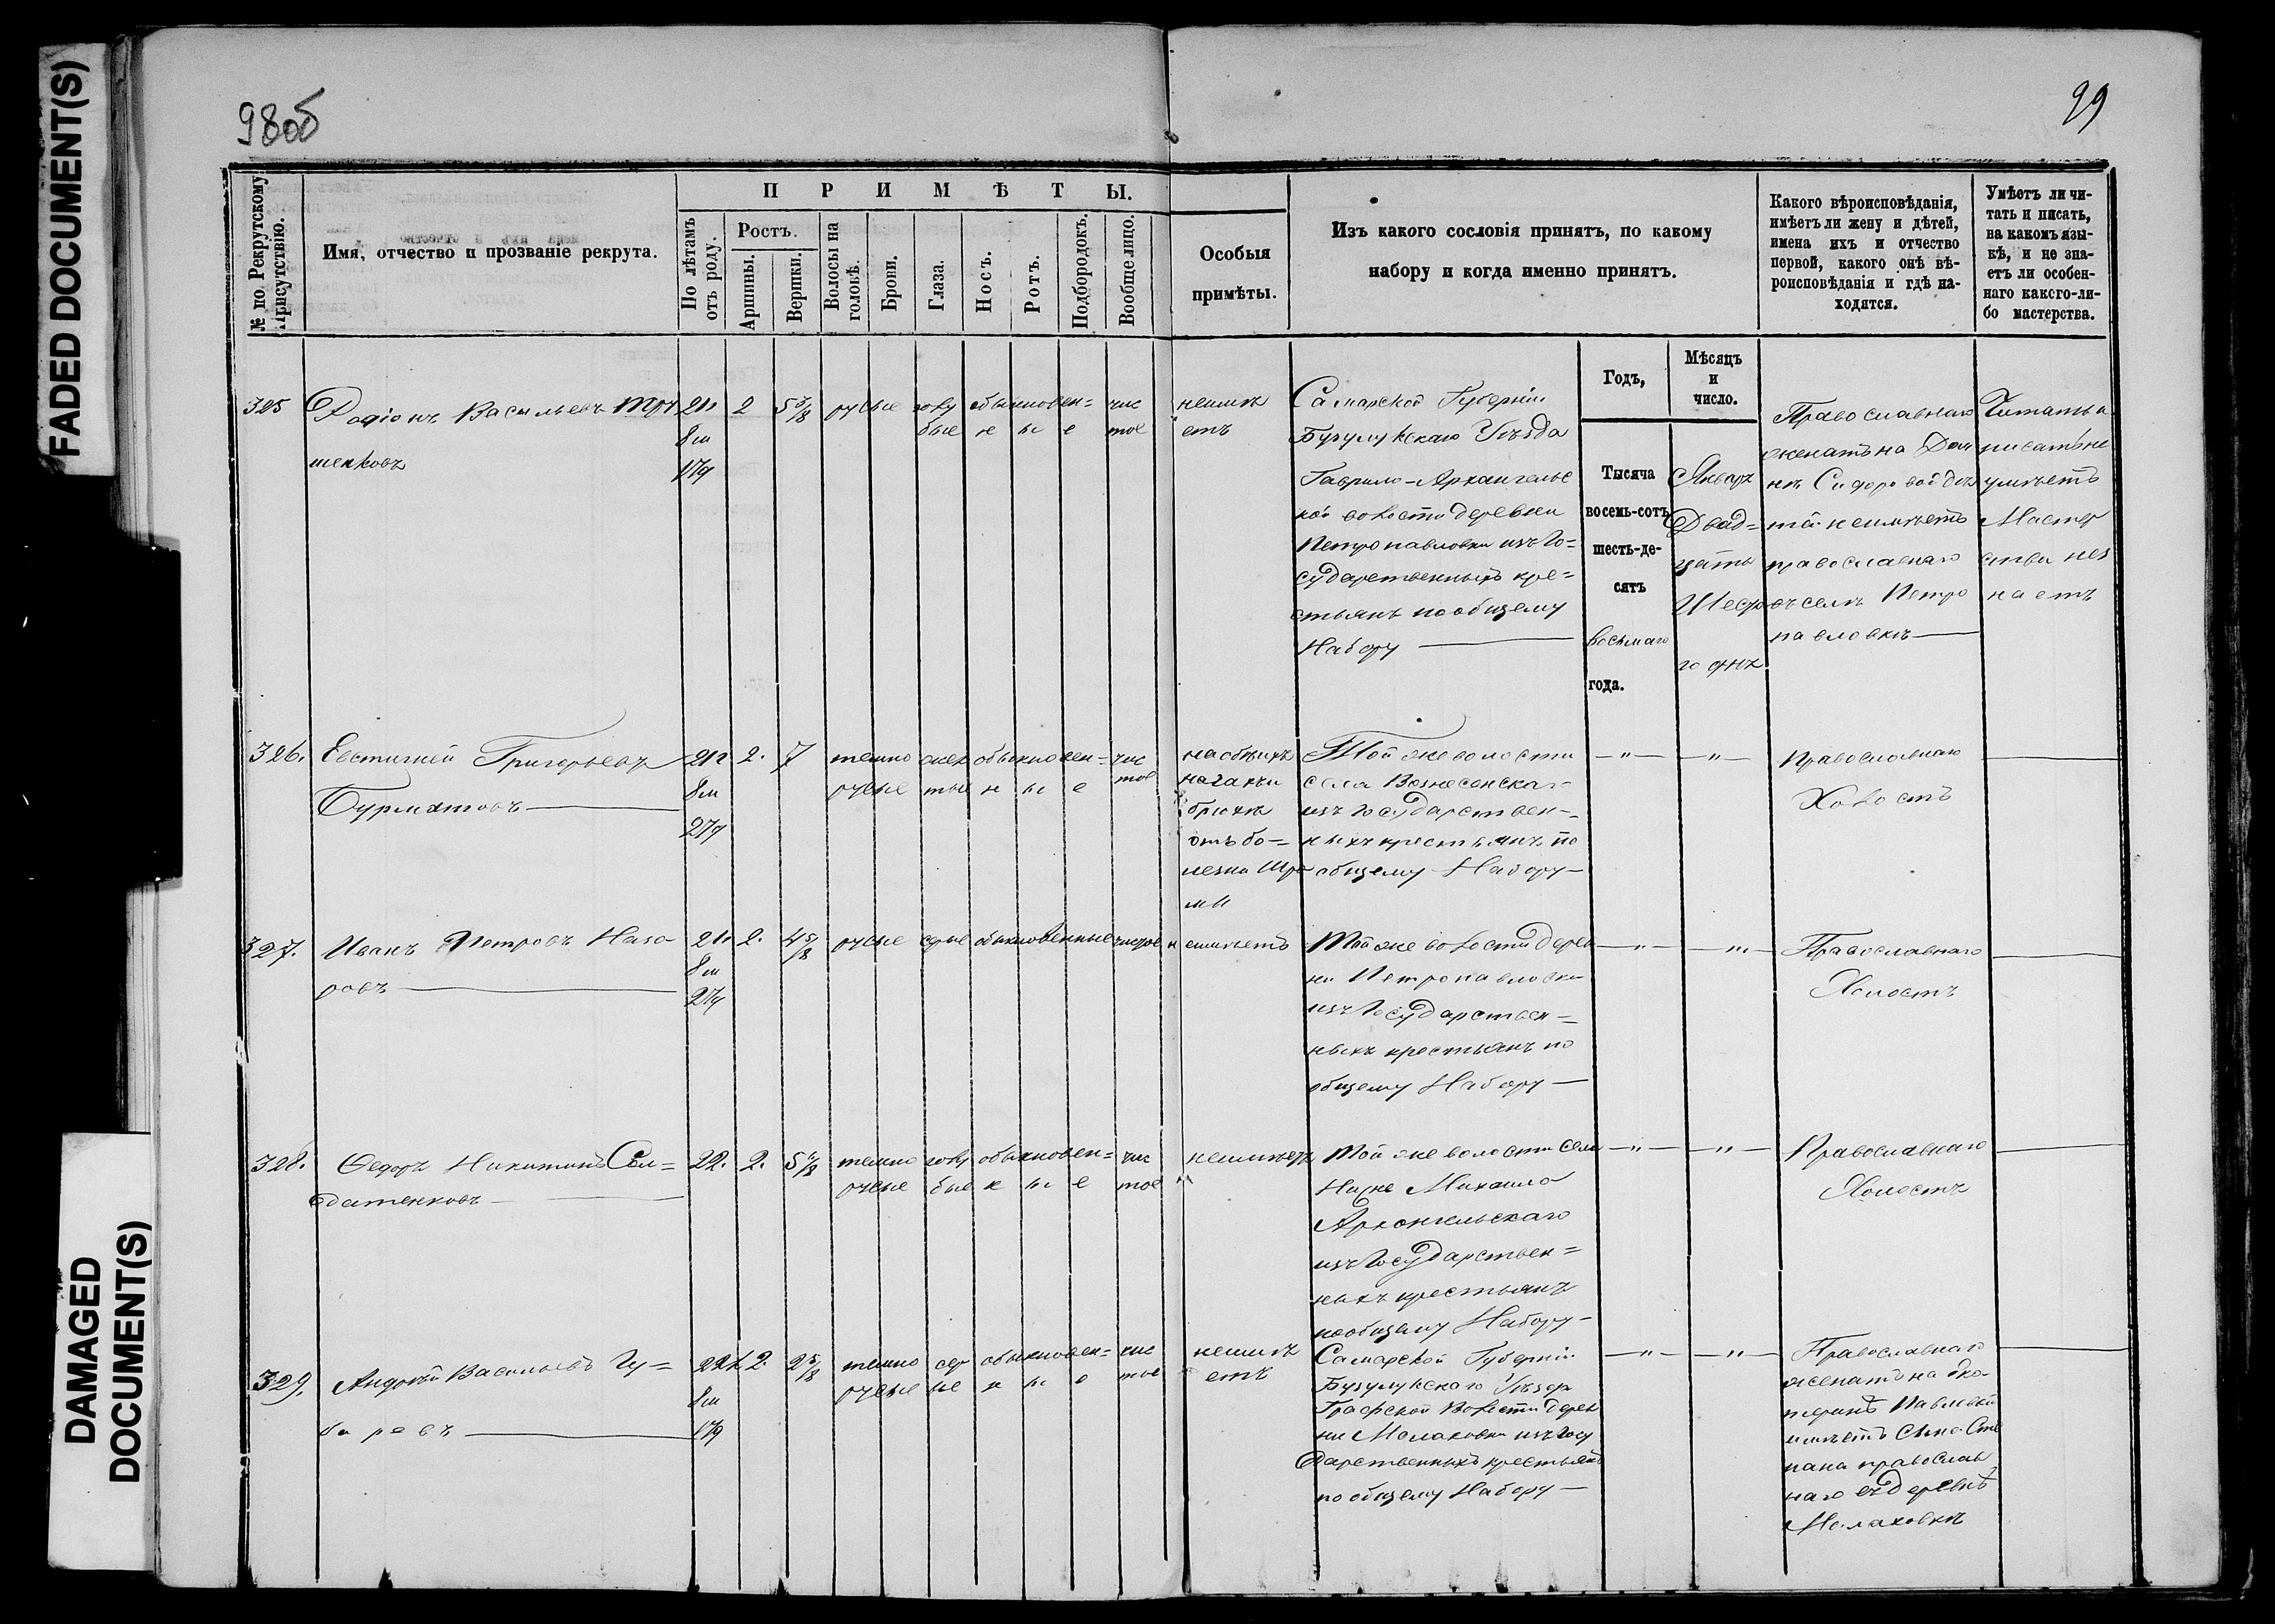 FADED DOCUMENT(S)
DAMAGED
DOCUMENT(S)
98об
99
№ по Рекрутскому
Присутствію.
Имя, отчество и прозваніе рекрута.
ПРИМѢТЫ.
По лѣтамъ
отъ роду.
Ростъ.
Аршины.
Вершки.
Волосы на
головѣ.
Брови.
Глаза.
Носъ.
Ротъ.
Подбородокъ.
Вообще лицо.
Особыя
примѣты.
Изъ какого сословія принятъ, по какому
набору и когда именно принятъ.
Какого вѣроисповѣданія,
имѣетъ ли жену и дѣтей,
имена ихъ и отчество
первой, какого онѣ вѣ-
роисповѣданія и гдѣ на-
ходятся.
Умѣетъ ли чи-
тать и писать,
на какомъ язы-
кѣ, и не зна-
етъ ли особен-
наго какого-ли-
бо мастерства.
Годъ,
Мѣсяцъ
и
число.
325
Родіонъ Васильевъ
шенковъ
21
8 м
17
2
5 5/8
русые
голу
бые
обыкновен=
ные
чис
тое
неимѣ
етъ
Самарской Губерніи
Бузулукскаго Уѣзда
Гаврило-Архангельс
кой волости деревни
Петропавловки изъ Го=
сударственныхъ кре=
стьянъ по общему
Набору
Тысяча
восемь-сотъ
шесть-де-
сятъ
восьмаго
года.
Январ
Двад=
цать
го дня
Православнаго
женатъ на
нѣ Сидоровой дѣ
тей неимѣетъ
православнаго
въ селѣ Петро
павловкѣ
Читать и
писать не
умѣетъ
Мастер
ства нез
наетъ
326.
Евстигней Григорьевъ
Бурматовъ
21
8 м
27
2.
7
темно
русые
обыкновен=
ные
чис
тое
на обѣихъ
брюхѣ
отъ бо=
лезни
Той же волости
села Вознесенскаго
изъ Государствен=
ныхъ крестьянъ по
общему Набору
Православнаго
Холостъ
327.
Иванъ Петровъ Наза
ровъ
21
8 м
27
2.
4 5/8
русые
серые
обыкновенные
чистое
неимѣетъ
Той же волости дерев
ни Петропавловки
изъ Государствен=
ныхъ крестьянъ по
общему Набору
Православнаго
Холостъ
328.
Ѳедоръ Никитинъ Сол=
датенковъ
22.
2.
темно
русые
голу
бые
обыкновен=
ные
чис
тое
неимѣетъ
Той же волости села
Михаило
Архангельскаго
изъ Государствен=
ныхъ крестьянъ
по общему Набору
Православнаго
Холостъ
329.
Васильевъ Гу=
баревъ
22
8 м
17
2.
2 5/8
темно
русые
сер
ые
обыкновен=
ные
чис
тое
неимѣ
етъ
Самарской Губерніи
Бузулукскаго Уѣзда
Графской Волости дерев
ни Малаховки изъ Госу
дарственныхъ крестьянъ
по общему Набору
Православнаго
женатъ на Ека-
теринѣ Павловой
имѣетъ сына Сте
пана православ
наго въ деревнѣ
Малаховкѣ